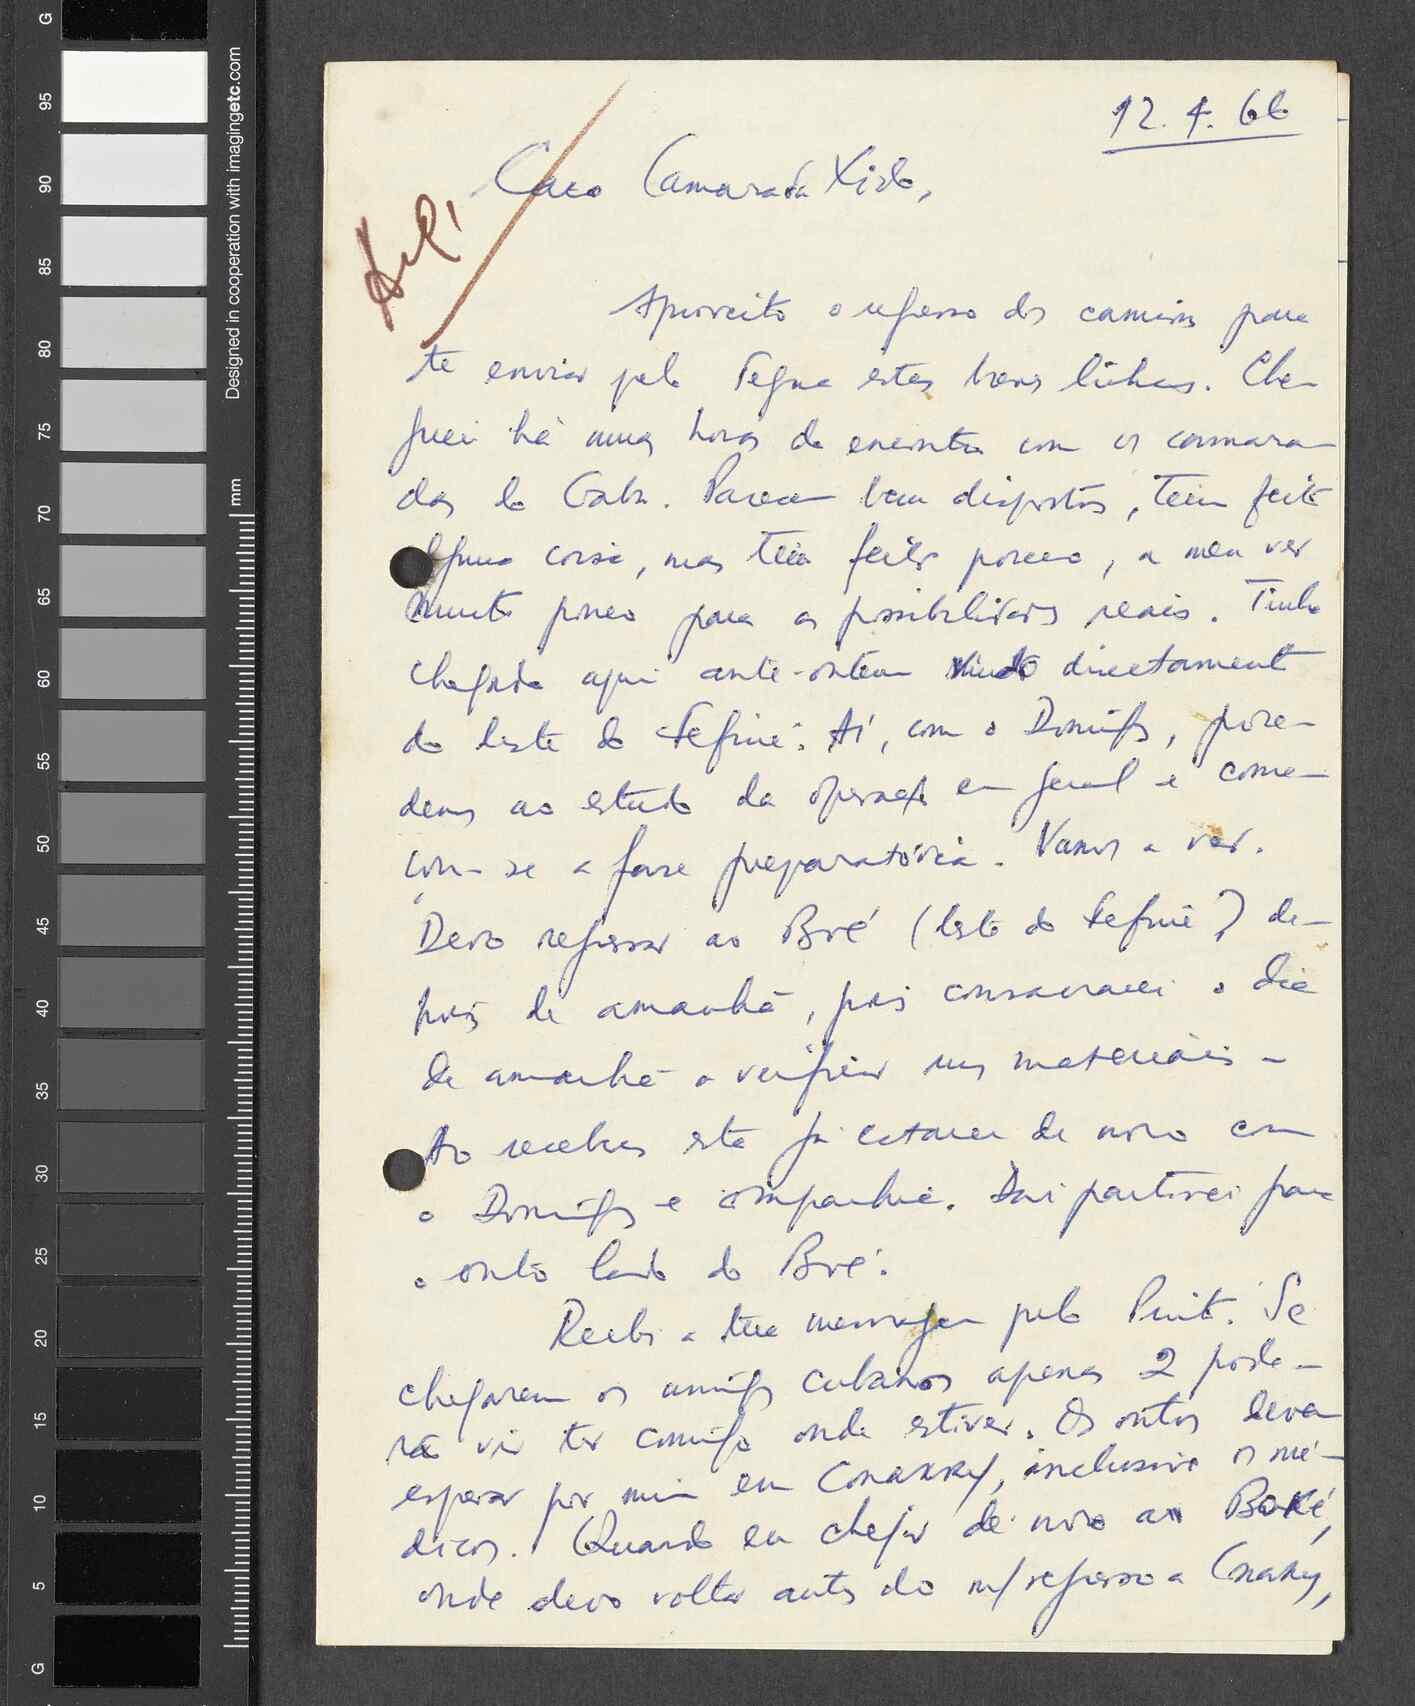 12.4.66
Caro Camarada Xido,
Arq.
Aproveito o regresso dos camiões para
te enviar pelo Tegna estas breves linhas. Che-
guei há umas horas do encontro com os camara-
das do Gabu. Parecem bem dispostos, têm feito
alguma coisa, mas têm feito pouco, a meu ver
muito pouco para as possibilidades reais. Tinha
chegado aqui ante-ontem vindo directamente
do leste do Fefiné. Aí, com o Domingos, proce-
demos ao estudo da operação em geral e come-
çou-se a fase preparatória. Vamos a ver.
Devo regressar ao Boé (leste do Fefiné) de-
pois de amanhã, pois consagrarei o dia
de amanhã a verificar uns materiais -
Ao receberes esta já estarei de novo com
o Domingos e companhia. Daí partirei para
o outro lado do Boé.
Recebi a tua mensagem pelo Pinto. Se
chegarem os amigos cubanos apenas 2 pode-
rão vir ter comigo onde estiver. Os outros devem
esperar por mim em Conakry, inclusive os mé-
dicos. Quando eu chegar de novo ao Boké,
onde devo voltar antes do m/regresso a Conakry,
Designed in cooperation with imagingetc.com
mm
G
95
90
85
80
75
70
65
60
55
50
45
40
35
30
25
20
15
10
5
G